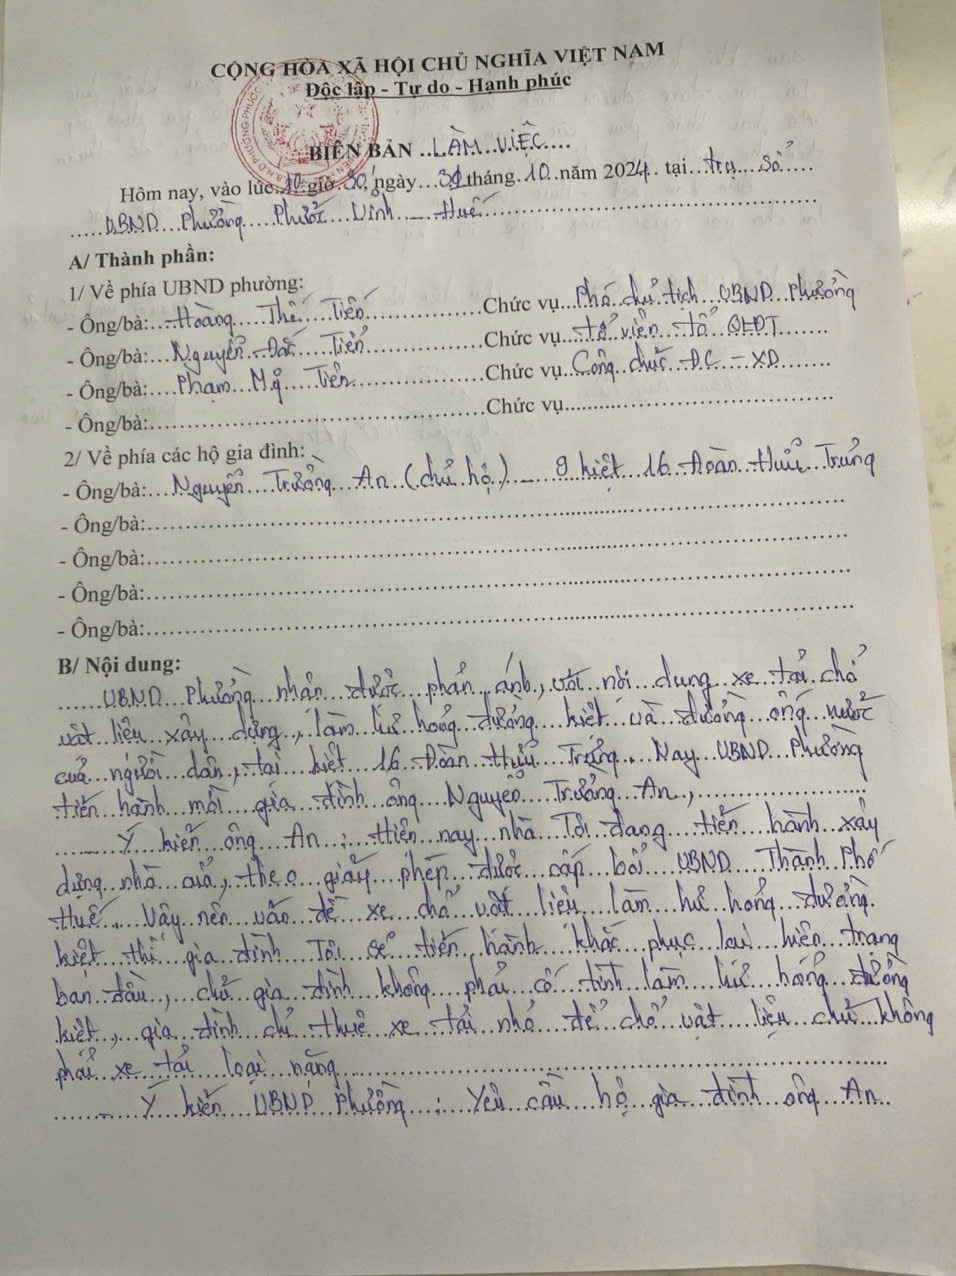 CỘNG HÒA XÃ HỘI CHỦ NGHĨA VIỆT NAM
Độc lập - Tự do - Hạnh phúc
BIÊN BẢN ..LÀM..VIỆC....
Hôm nay, vào lúc..10..giờ..30..ngày...30.tháng..10..năm 2024. tại...trụ...sở.....
.....UBND...Phường....Phước...Vĩnh...-...Huế.....
A/ Thành phần:
1/ Về phía UBND phường:
- Ông/bà:...Hoàng....Thế...Tiến.....Chức vụ...Phó..chủ..tịch...UBND..Phường
- Ông/bà:...Nguyễn..Đắc....Tiến.....Chức vụ...tổ viên..tổ QHĐT.....
- Ông/bà:....Phạm...Mỹ...Tiên.....Chức vụ...Công..chức..Đ.C..-..XD.....
- Ông/bà:.....Chức vụ.....
2/ Về phía các hộ gia đình:
- Ông/bà:...Nguyễn....Trường...An..(chủ hộ)..-..9..kiệt...16..Đoàn..Hữu..Trưng
- Ông/bà:.....
- Ông/bà:.....
- Ông/bà:.....
- Ông/bà:.....
B/ Nội dung:
......UBND..Phường...nhận...được...phản..ánh,..với..nội..dung..xe..tải..chở
vật..liệu..xây..dựng..,..làm..hư hỏng..đường...kiệt..và..đường..ống..nước
của..người..dân,..tại..kiệt...16..Đoàn..Hữu..Trưng...Nay..UBND..Phường
tiến hành..mời..gia..đình..ông...Nguyễn..Trường..An,.....
......-..Ý..kiến..ông..An..:..Hiện..nay..nhà..Tôi..đang...tiến..hành..xây
dựng..nhà..cửa,..theo..giấy..phép..được..cấp..bởi..UBND..Thành..Phố
Huế...Vậy..nên..vấn..đề..xe..chở..vật..liệu..làm..hư..hỏng..đường.
kiệt..thì..gia..đình..Tôi..sẽ..tiến..hành..khắc..phục..lại..hiện..trạng
ban..đầu..,..chứ..gia..đình..không..phải..cố..tình..làm..hư..hỏng..đường
kiệt..,..gia..đình..chỉ..thuê..xe..tải..nhỏ..để..chở..vật..liệu..chứ..không
phải..xe..tải..loại..nặng.....
......-..Ý..kiến..UBND..Phường..:..Yêu..cầu..hộ..gia..đình..ông..An..